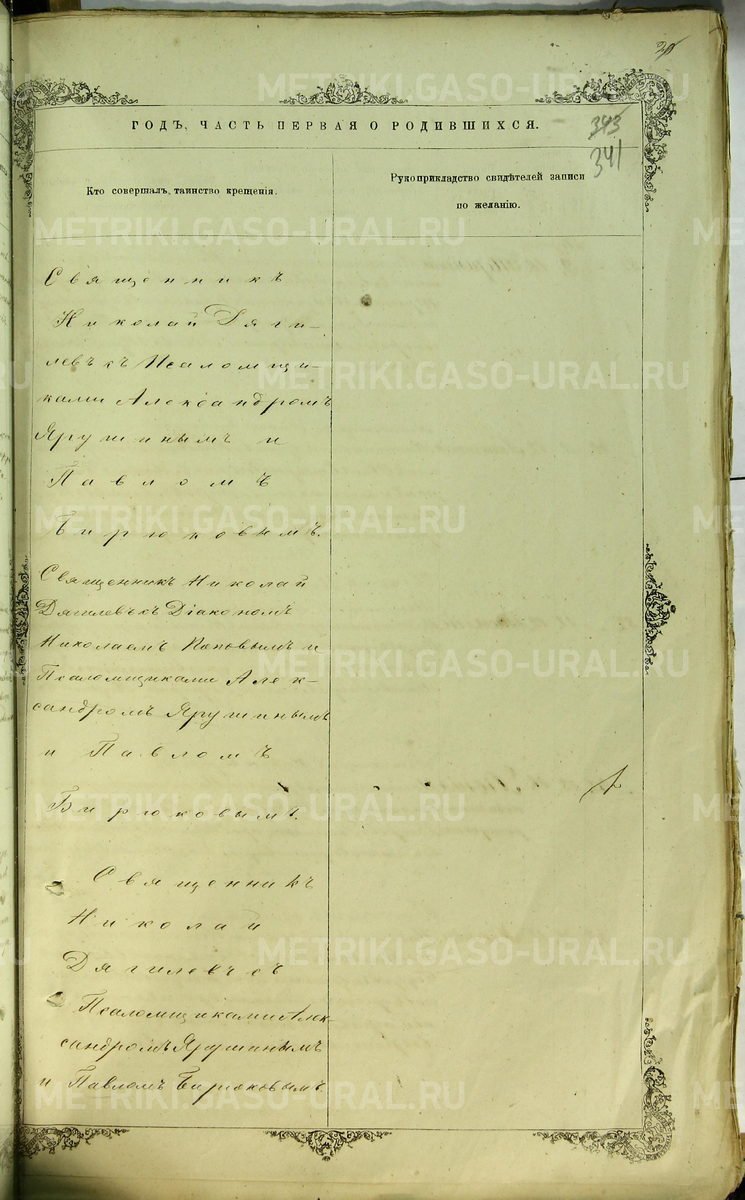 25
ГОДЪ, ЧАСТЬ ПЕРВАЯ О РОДИВШИХСЯ.
343
341
Кто совершалъ таинство крещенія.
Рукоприкладство свидѣтелей записи
по желанію.
Священникъ
Николай Дяги-
левъ съ Псаломщи-
ками Александромъ
Ярушинымъ и
Павломъ
Бирюковымъ.
Священникъ Николай
Дягилевъ съ Діакономъ
Николаемъ Поповымъ и
Псаломщиками Алек-
сандромъ Ярушинымъ
и Павломъ
Бирюковымъ.
Священникъ
Николай
Дягилевъ съ
Псаломщиками Алек-
сандромъ Ярушинымъ
и Павломъ Бирюковымъ
METRIKI.GASO-URAL.RU